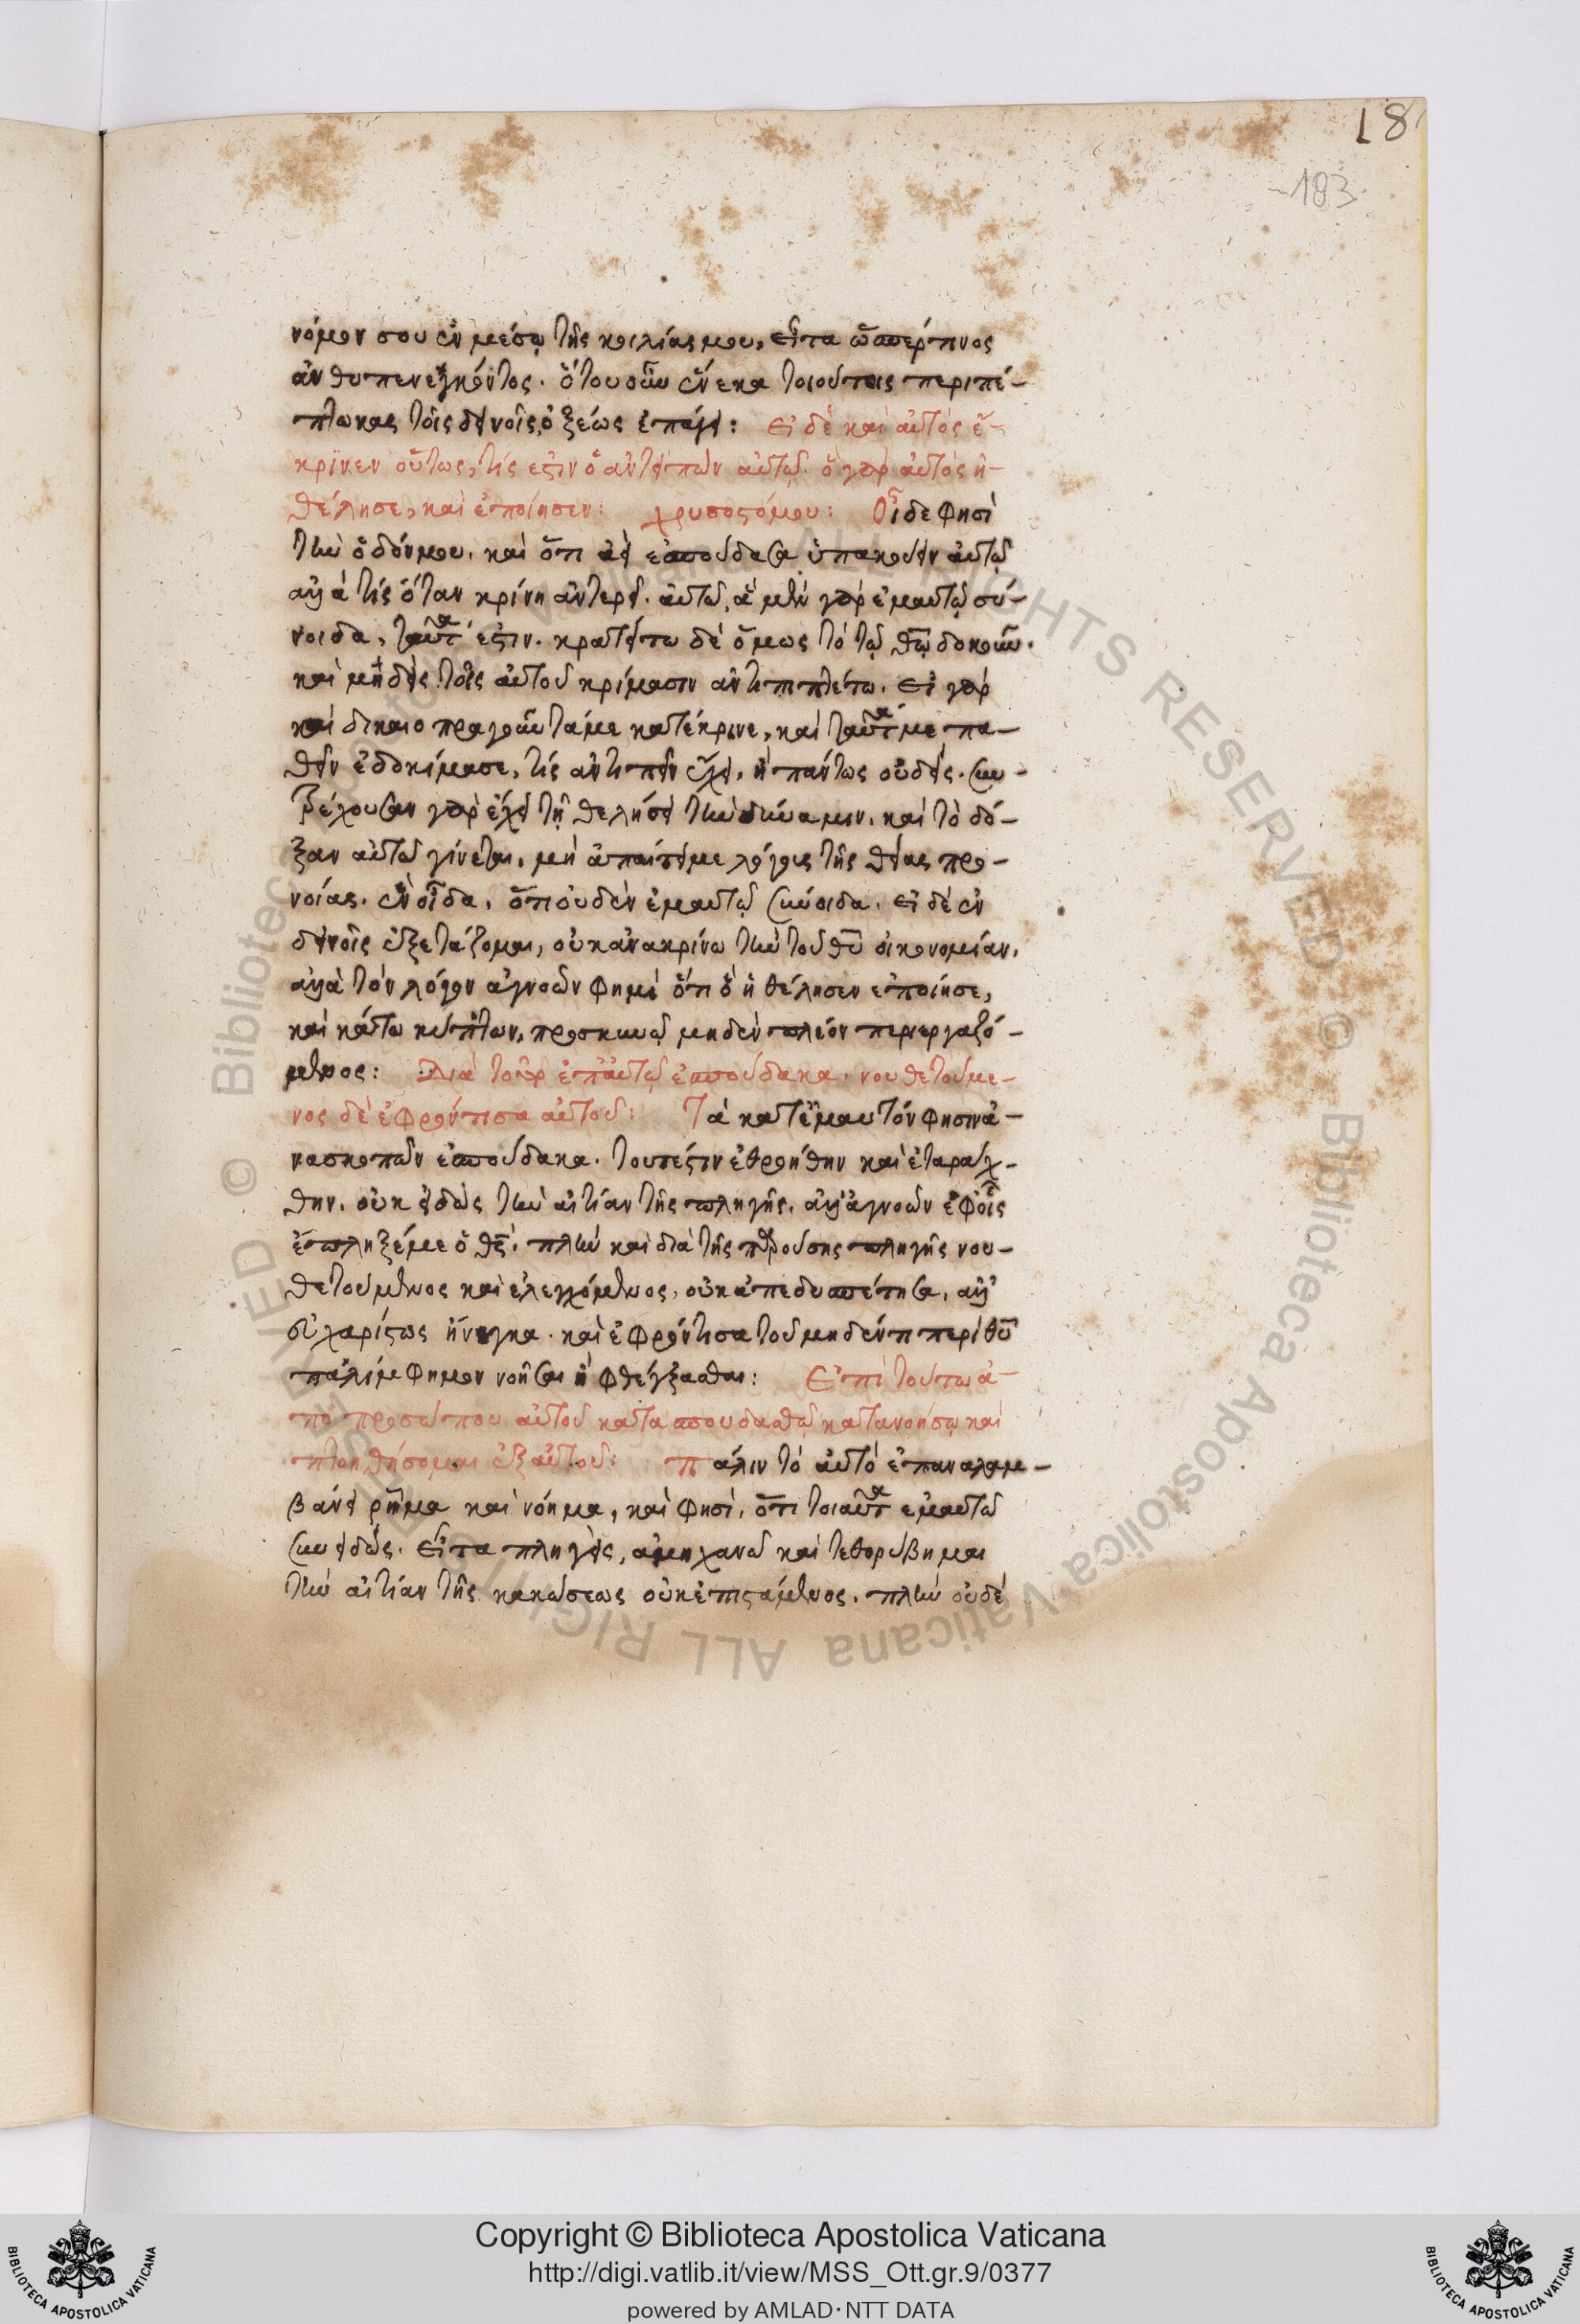 18
183
νόμον σου ἐν μέσῳ τῆς κοιλίας μου, εἶτα ὥσπέρ τινος
ἀνθυπενεγκόντος. ὅτου οὖν ἕνεκα τοιούτοις περιπέ-
πτωκας τοῖς δεινοῖς, ὀξέως ἐπάγει: Εἰ δὲ καὶ αὐτὸς ἔ-
κρινεν οὕτως, τίς ἐστιν ὁ ἀντειπὼν αὐτῷ. ὃ γὰρ αὐτὸς ἠ-
θέλησε, καὶ ἐποίησεν: χρυσοστόμου: Οἶδε φησὶ
τὴν ὁδόν μου. καὶ ὅτι ἀεὶ ἐσπούδασα ὑπακούειν αὐτῷ
ἀλλὰ τίς ὅταν κρίνη ἀντερεῖ αὐτῷ, ἃ μὲν γὰρ ἐμαυτῷ σύ-
νοιδα, ταῦτά ἐστιν. κρατείτω δὲ ὅμως τὸ τῷ θῶ δοκοῦν.
καὶ μηδεὶς τοῖς αὐτοῦ κρίμασιν ἀντιπιπτέτω. εἰ γὰρ
καὶ δικαιοπραγοῦντά με κατέκρινε, καὶ ταῦτά με πα-
θεῖν ἐδοκίμασε, τίς ἀντιπεῖν ἔχει, ἢ πάντως οὐδείς. συν-
τρέχουσαν γὰρ ἔχει τῇ θελήσει τὴν δύναμιν. καὶ τὸ δό-
ξαν αὐτῷ γίνεται. μὴ ἀπαίτει με λόγους τῆς θείας προ-
νοίας. ἓν οἶδα, ὅτι οὐδὲν ἐμαυτῷ σύνοιδα. εἰ δὲ ἐν
δεινοῖς ἐξετάζομαι, οὐκ ἀνακρίνω τὴν τοῦ θῦ οἰκονομίαν,
ἀλλὰ τὸν λόγον ἀγνοῶν φημὶ ὅτι ὃ ἠθέλησεν ἐποίησε,
καὶ κάτω κύπτων, προσκυνῶ μηδὲν πλέον περιεργαζό-
μενος: Διὰ τοῦτο ἐπ' αὐτῷ ἐσπούδακα. νουθετούμε-
νος δὲ ἐφρόντισα αὐτοῦ: Τὰ κατ' ἐμαυτόν φησιν ἀ-
νασκοπῶν ἐσπούδακα. τουτέστιν ἐθροήθην καὶ ἐταράχ-
θην. οὐκ εἰδὼς τὴν αἰτίαν τῆς πληγῆς. ἀλλ' ἀγνοῶν ἐφ' οἷς
ἔπληξέ με ὁ θς. πλὴν καὶ διὰ τῆς παρούσης πληγῆς νου-
θετούμενος καὶ ἐλεγχόμενος, οὐκ ἀπεδυσπέτησα, ἀλλ'
εὐχαρίστως ἤνεγκα. καὶ ἐφρόντισα τοῦ μηδέν τι περὶ θῦ
παλίμφημον νοῆσαι ἢ φθέγξασθαι: Ἐπὶ τούτῳ ἀ-
πὸ προσώπου αὐτοῦ κατασπουδασθῶ κατανοήσω καὶ
πτοηθήσομαι ἐξ αὐτοῦ: Πάλιν τὸ αὐτὸ ἐπαναλαμ-
βάνει ῥῆμα καὶ νόημα, καὶ φησὶ, ὅτι τοιαῦτα ἐμαυτῷ
συνειδὼς. εἶτα πληγεὶς, ἀμηχανῶ καὶ τεθορύβημαι
τὴν αἰτίαν τῆς κακώσεως οὐκ ἐπιστάμενος. πλὴν οὐδὲ
© Biblioteca Apostolica Vaticana ALL RIGHTS RESERVED © Biblioteca Apostolica Vaticana ALL RIGHTS RESERVED
Copyright © Biblioteca Apostolica Vaticana
http://digi.vatlib.it/view/MSS_Ott.gr.9/0377
powered by AMLAD·NTT DATA
BIBLIOTECA APOSTOLICA VATICANA
BIBLIOTECA APOSTOLICA VATICANA